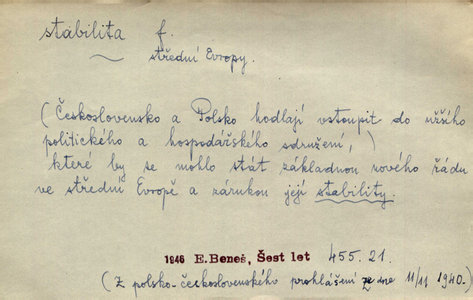 stabilita f.
~ střední Evropy.
(Československo a Polsko hodlají vstoupit do užšího
politického a hospodářského sdružení,)
které by se mohlo stát základnou nového řádu
ve střední Evropě a zárukou její stability.
1946 E. Beneš, Šest let 455.21.
(Z polsko-československého prohlášení ze dne 11/11 1940.)